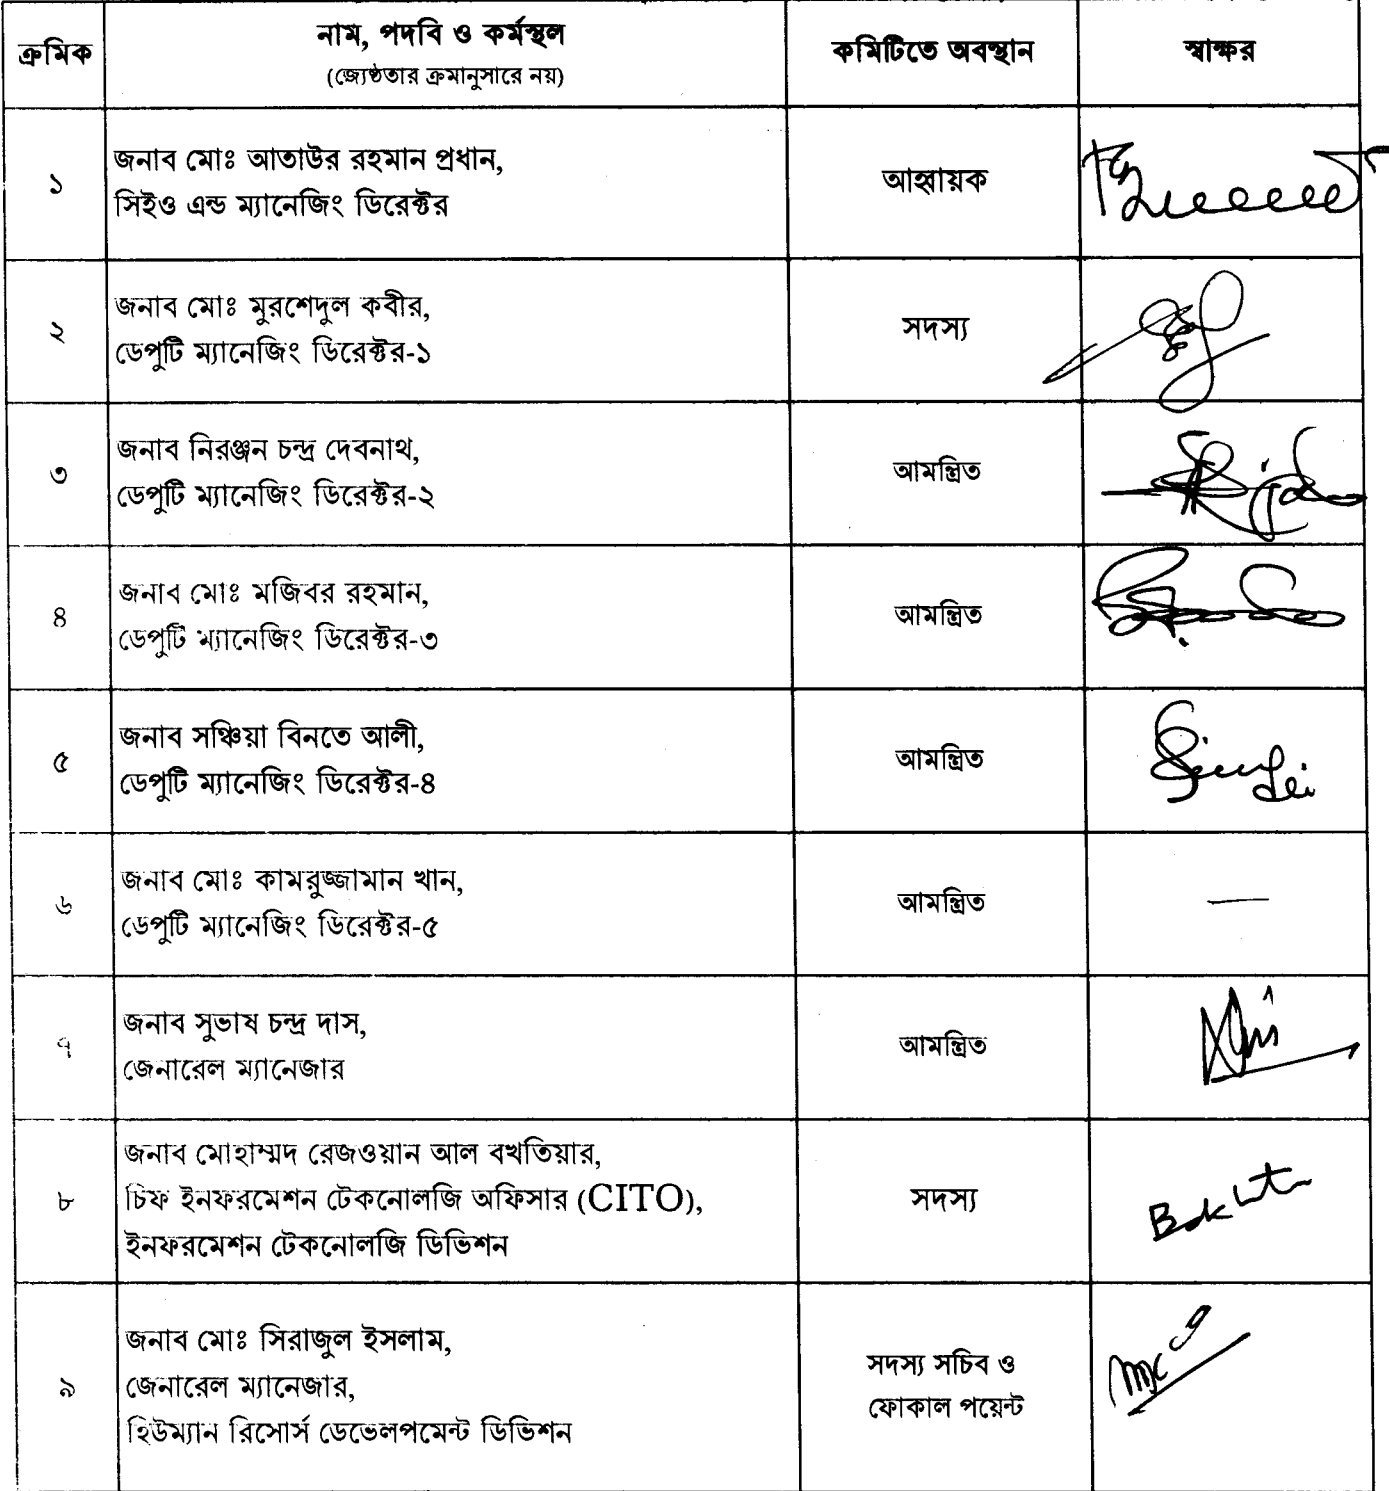 ক্রমিক
নাম, পদবি ও কর্মস্থল
(জ্যেষ্ঠতার ক্রমানুসারে নয়)
কমিটিতে অবস্থান
স্বাক্ষর
১
জনাব মোঃ আতাউর রহমান প্রধান,
সিইও এন্ড ম্যানেজিং ডিরেক্টর
আহ্বায়ক
২
জনাব মোঃ মুরশেদুল কবীর,
ডেপুটি ম্যানেজিং ডিরেক্টর-১
সদস্য
৩
জনাব নিরঞ্জন চন্দ্র দেবনাথ,
ডেপুটি ম্যানেজিং ডিরেক্টর-২
আমন্ত্রিত
৪
জনাব মোঃ মজিবর রহমান,
ডেপুটি ম্যানেজিং ডিরেক্টর-৩
আমন্ত্রিত
৫
জনাব সঞ্চিয়া বিনতে আলী,
ডেপুটি ম্যানেজিং ডিরেক্টর-৪
আমন্ত্রিত
৬
জনাব মোঃ কামরুজ্জামান খান,
ডেপুটি ম্যানেজিং ডিরেক্টর-৫
আমন্ত্রিত
—
৭
জনাব সুভাষ চন্দ্র দাস,
জেনারেল ম্যানেজার
আমন্ত্রিত
৮
জনাব মোহাম্মদ রেজওয়ান আল বখতিয়ার,
চিফ ইনফরমেশন টেকনোলজি অফিসার (CITO),
ইনফরমেশন টেকনোলজি ডিভিশন
সদস্য
৯
জনাব মোঃ সিরাজুল ইসলাম,
জেনারেল ম্যানেজার,
হিউম্যান রিসোর্স ডেভেলপমেন্ট ডিভিশন
সদস্য সচিব ও
ফোকাল পয়েন্ট